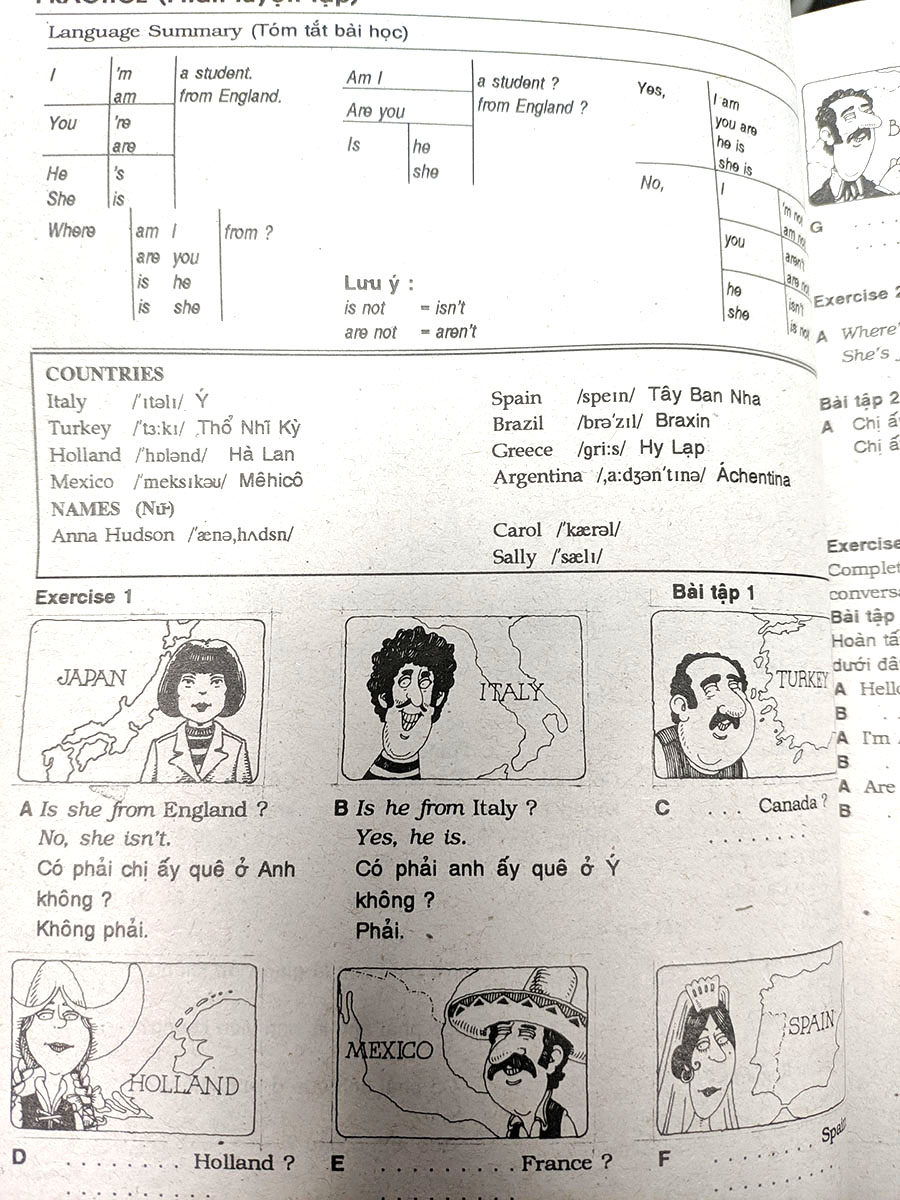 Language Summary (Tóm tắt bài học)
I 'm a student.
am from England.
You 're
are
He 's
She is
Am I a student ?
Are you from England ?
Is he
she
Yes, I am
you are
he is
she is
No, I 'm not
am not
you aren't
are not
he isn't
she is not
Where am I from ?
are you
is he
is she
Lưu ý :
is not = isn't
are not = aren't
COUNTRIES
Italy /'ɪtəlɪ/ Ý
Turkey /'tɜ:kɪ/ Thổ Nhĩ Kỳ
Holland /'hɒlənd/ Hà Lan
Mexico /'meksɪkəʊ/ Mêhicô
Spain /speɪn/ Tây Ban Nha
Brazil /brə'zɪl/ Braxin
Greece /gri:s/ Hy Lạp
Argentina /,a:dʒən'tɪnə/ Áchentina
NAMES (Nữ)
Anna Hudson /'ænə,hʌdsn/
Carol /'kærəl/
Sally /'sælɪ/
Exercise 1
Bài tập 1
JAPAN
ITALY
TURKEY
A Is she from England ?
No, she isn't.
Có phải chị ấy quê ở Anh
không ?
Không phải.
B Is he from Italy ?
Yes, he is.
Có phải anh ấy quê ở Ý
không ?
Phải.
C . . . Canada ?
. . . . . . . . .
HOLLAND
MEXICO
SPAIN
D . . . . . . . . . Holland ?
. . . . . . . . . . .
E . . . . . . . . . . France ?
. . . . . . . . . .
F . . . . . . . . . Spain
. . . . . . . . . .
G . . . .
. . . .
Exercise 2
A Where'
She's
Bài tập 2
A Chị ấ
Chị ấ
Exercise
Complet
convers
Bài tập
Hoàn tấ
dưới đâ
A Hello
B . .
A I'm
B .
A Are
B .